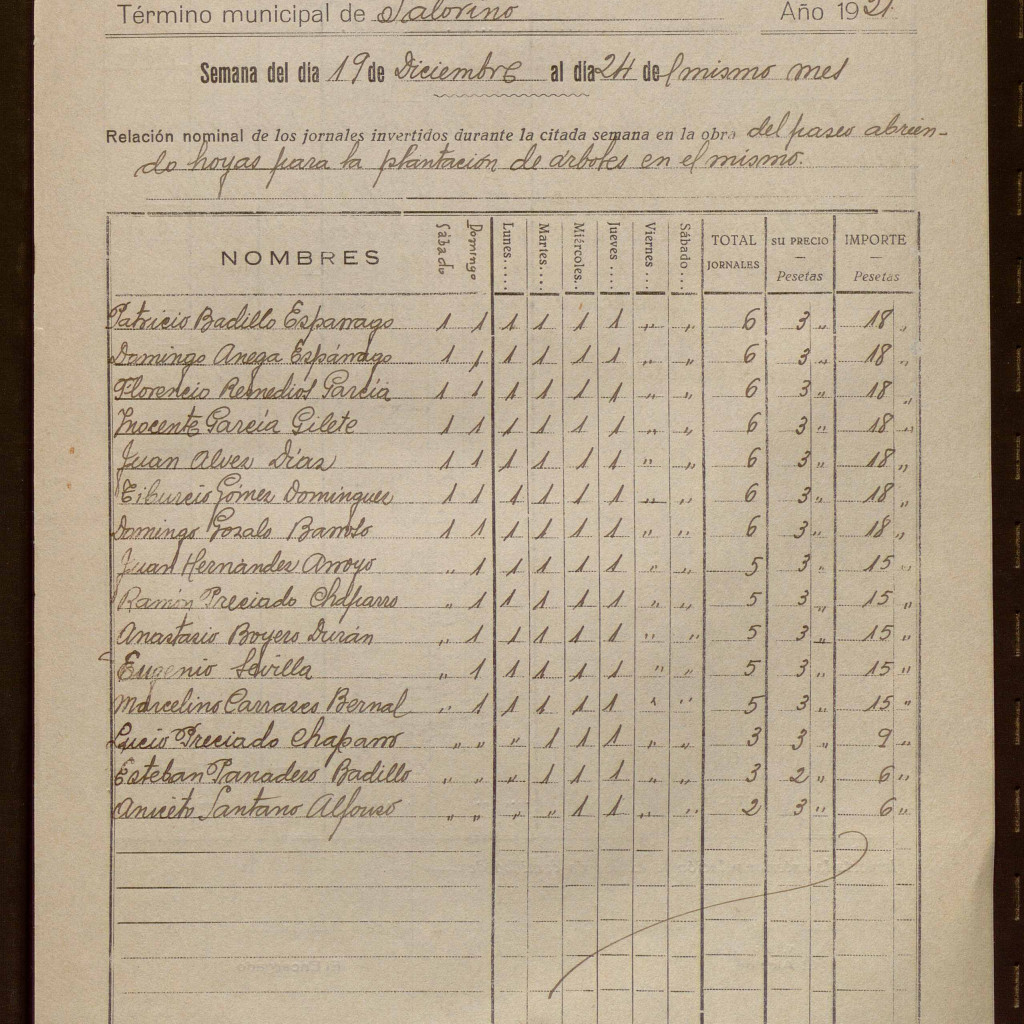 Término municipal de Salorino Año 1921
Semana del día 19 de Diciembre al día 24 del mismo mes
Relación nominal de los jornales invertidos durante la citada semana en la obra del paseo abrien-
do hoyas para la plantación de árboles en el mismo.
NOMBRES Sábado Domingo Lunes..... Martes.... Miércoles.. Jueves .... Viernes... Sábado... TOTAL JORNALES SU PRECIO — Pesetas IMPORTE — Pesetas
Patricio Badillo Esparrago 1 1 1 1 1 1 " " 6 3 " 18 "
Domingo Anega Espárrago 1 1 1 1 1 1 " " 6 3 " 18 "
Florencio Remedios García 1 1 1 1 1 1 " " 6 3 " 18 "
Inocente García Gilete 1 1 1 1 1 1 " " 6 3 " 18 "
Juan Alvez Díaz 1 1 1 1 1 1 " " 6 3 " 18 "
Tiburcio Gómez Dominguez 1 1 1 1 1 1 " " 6 3 " 18 "
Domingo Gozalo Barroso 1 1 1 1 1 1 " " 6 3 " 18 "
Juan Hernández Arroyo " 1 1 1 1 1 " " 5 3 " 15 "
Ramón Preciado Chaparro " 1 1 1 1 1 " " 5 3 " 15 "
Anastasio Boyero Durán " 1 1 1 1 1 " " 5 3 " 15 "
Eugenio Sevilla " 1 1 1 1 1 " " 5 3 " 15 "
Marcelino Carrasco Bernal " 1 1 1 1 1 " " 5 3 " 15 "
Lucio Preciado Chaparro " " " 1 1 1 " " 3 3 " 9 "
Esteban Panadero Badillo " " " 1 1 1 " " 3 2 " 6 "
Aniceto Santano Alfonso " " " " 1 1 " " 2 3 " 6 "